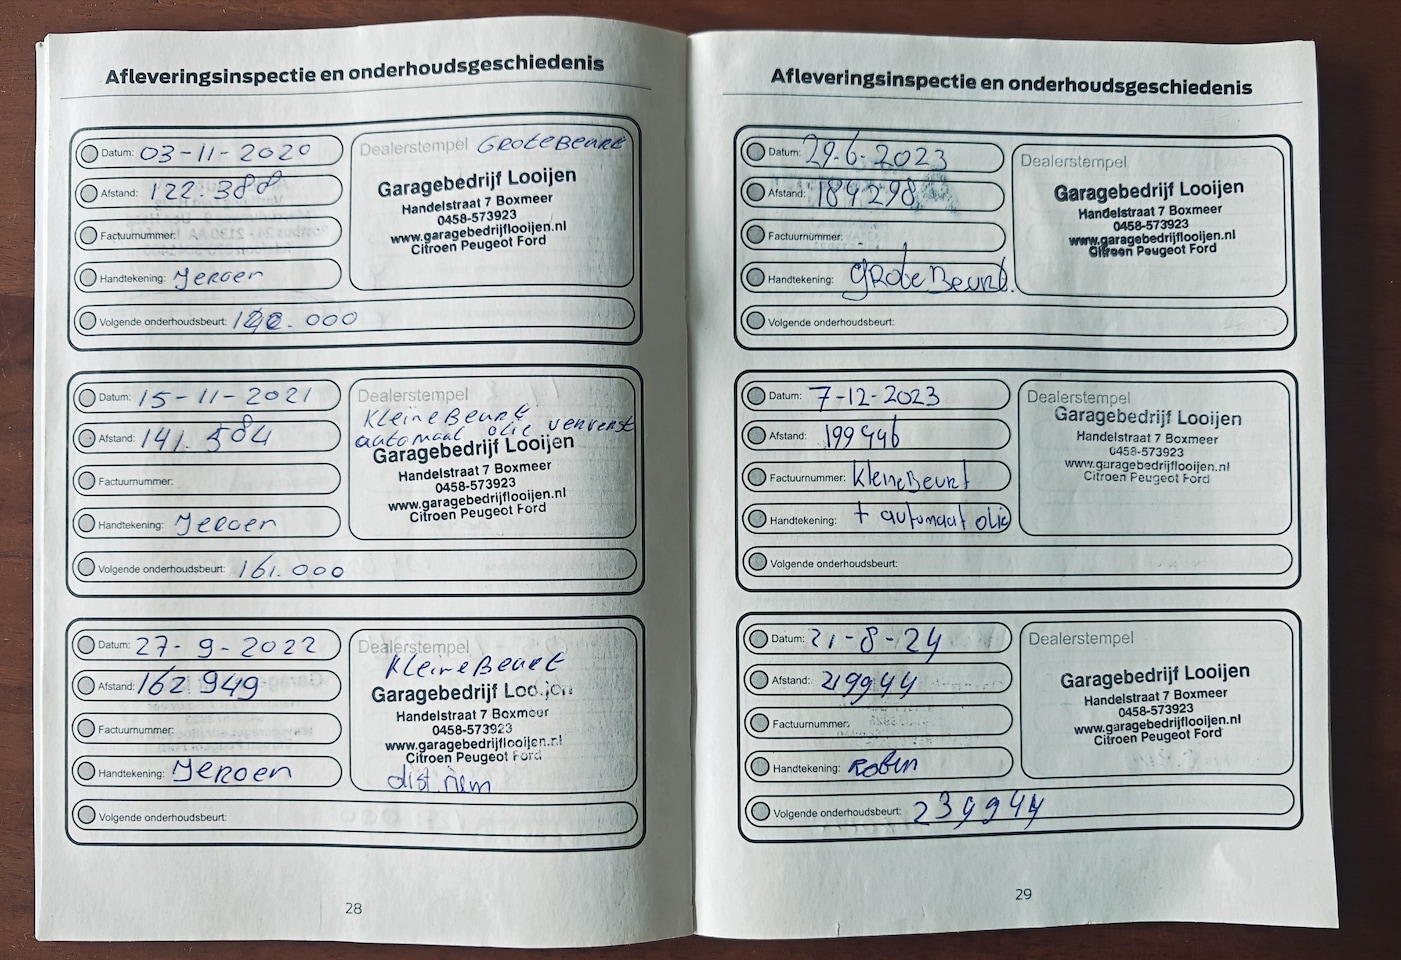 Afleveringsinspectie en onderhoudsgeschiedenis
Datum: 03-11-2020
Afstand: 122.388
Factuurnummer:
Handtekening: Jeroen
Volgende onderhoudsbeurt: 142.000
Dealerstempel Grote Beurt
Garagebedrijf Looijen
Handelstraat 7 Boxmeer
0458-573923
www.garagebedrijflooijen.nl
Citroen Peugeot Ford
Datum: 15-11-2021
Afstand: 141.584
Factuurnummer:
Handtekening: Jeroen
Volgende onderhoudsbeurt: 161.000
Dealerstempel
Kleine Beurt
automaat olie ververst
Garagebedrijf Looijen
Handelstraat 7 Boxmeer
0458-573923
www.garagebedrijflooijen.nl
Citroen Peugeot Ford
Datum: 27-9-2022
Afstand: 162949
Factuurnummer:
Handtekening: Jeroen
Volgende onderhoudsbeurt:
Dealerstempel
Kleine Beurt
Garagebedrijf Looijen
Handelstraat 7 Boxmeer
0458-573923
www.garagebedrijflooijen.nl
Citroen Peugeot Ford
dist riem
28
Afleveringsinspectie en onderhoudsgeschiedenis
Datum: 29-6-2023
Afstand: 184298
Factuurnummer:
Handtekening: Grote Beurt.
Volgende onderhoudsbeurt:
Dealerstempel
Garagebedrijf Looijen
Handelstraat 7 Boxmeer
0458-573923
www.garagebedrijflooijen.nl
Citroen Peugeot Ford
Datum: 7-12-2023
Afstand: 199946
Factuurnummer: Kleine Beurt
Handtekening: + automaat olie
Volgende onderhoudsbeurt:
Dealerstempel
Garagebedrijf Looijen
Handelstraat 7 Boxmeer
0458-573923
www.garagebedrijflooijen.nl
Citroen Peugeot Ford
Datum: 21-8-24
Afstand: 219944
Factuurnummer:
Handtekening: Robin
Volgende onderhoudsbeurt: 239944
Dealerstempel
Garagebedrijf Looijen
Handelstraat 7 Boxmeer
0458-573923
www.garagebedrijflooijen.nl
Citroen Peugeot Ford
29